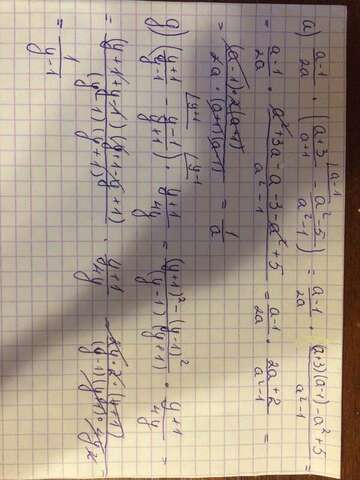 а) a-1/2a · (a+3/a+1 - a²-5/a²-1) = a-1/2a · (a+3)(a-1)-a²+5/a²-1 =
= a-1/2a · a²+3a-a-3-a²+5/a²-1 = a-1/2a · 2a+2/a²-1 =
= (a-1)·2(a+1)/2a·(a+1)(a-1) = 1/a
g) (y+1/y-1 - y-1/y+1) · y+1/4y = (y+1)²-(y-1)²/(y-1)(y+1) · y+1/4y =
= (y+1+y-1)(y+1-y+1)/(y-1)(y+1) · y+1/4y = 2y·2·(y+1)/(y-1)(y+1)·4y =
= 1/y-1